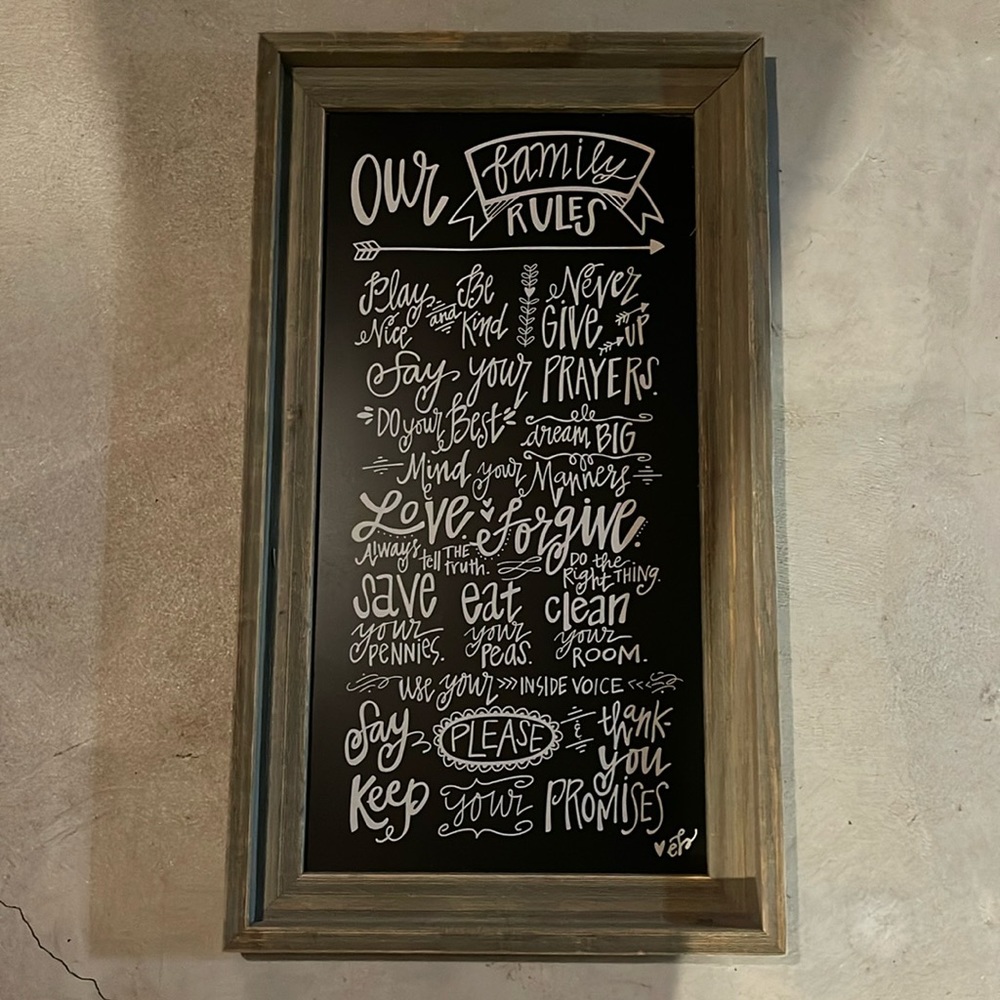 Our family RULES
Play Nice and Be Kind
Never GIVE UP
Say your PRAYERS.
Do your Best
dream BIG
Mind your Manners
Love. Forgive.
Always tell THE truth.
Do the Right THING.
save your PENNIES.
eat your PEAS.
clean your ROOM.
use your INSIDE VOICE
Say PLEASE & thank-you
Keep your PROMISES